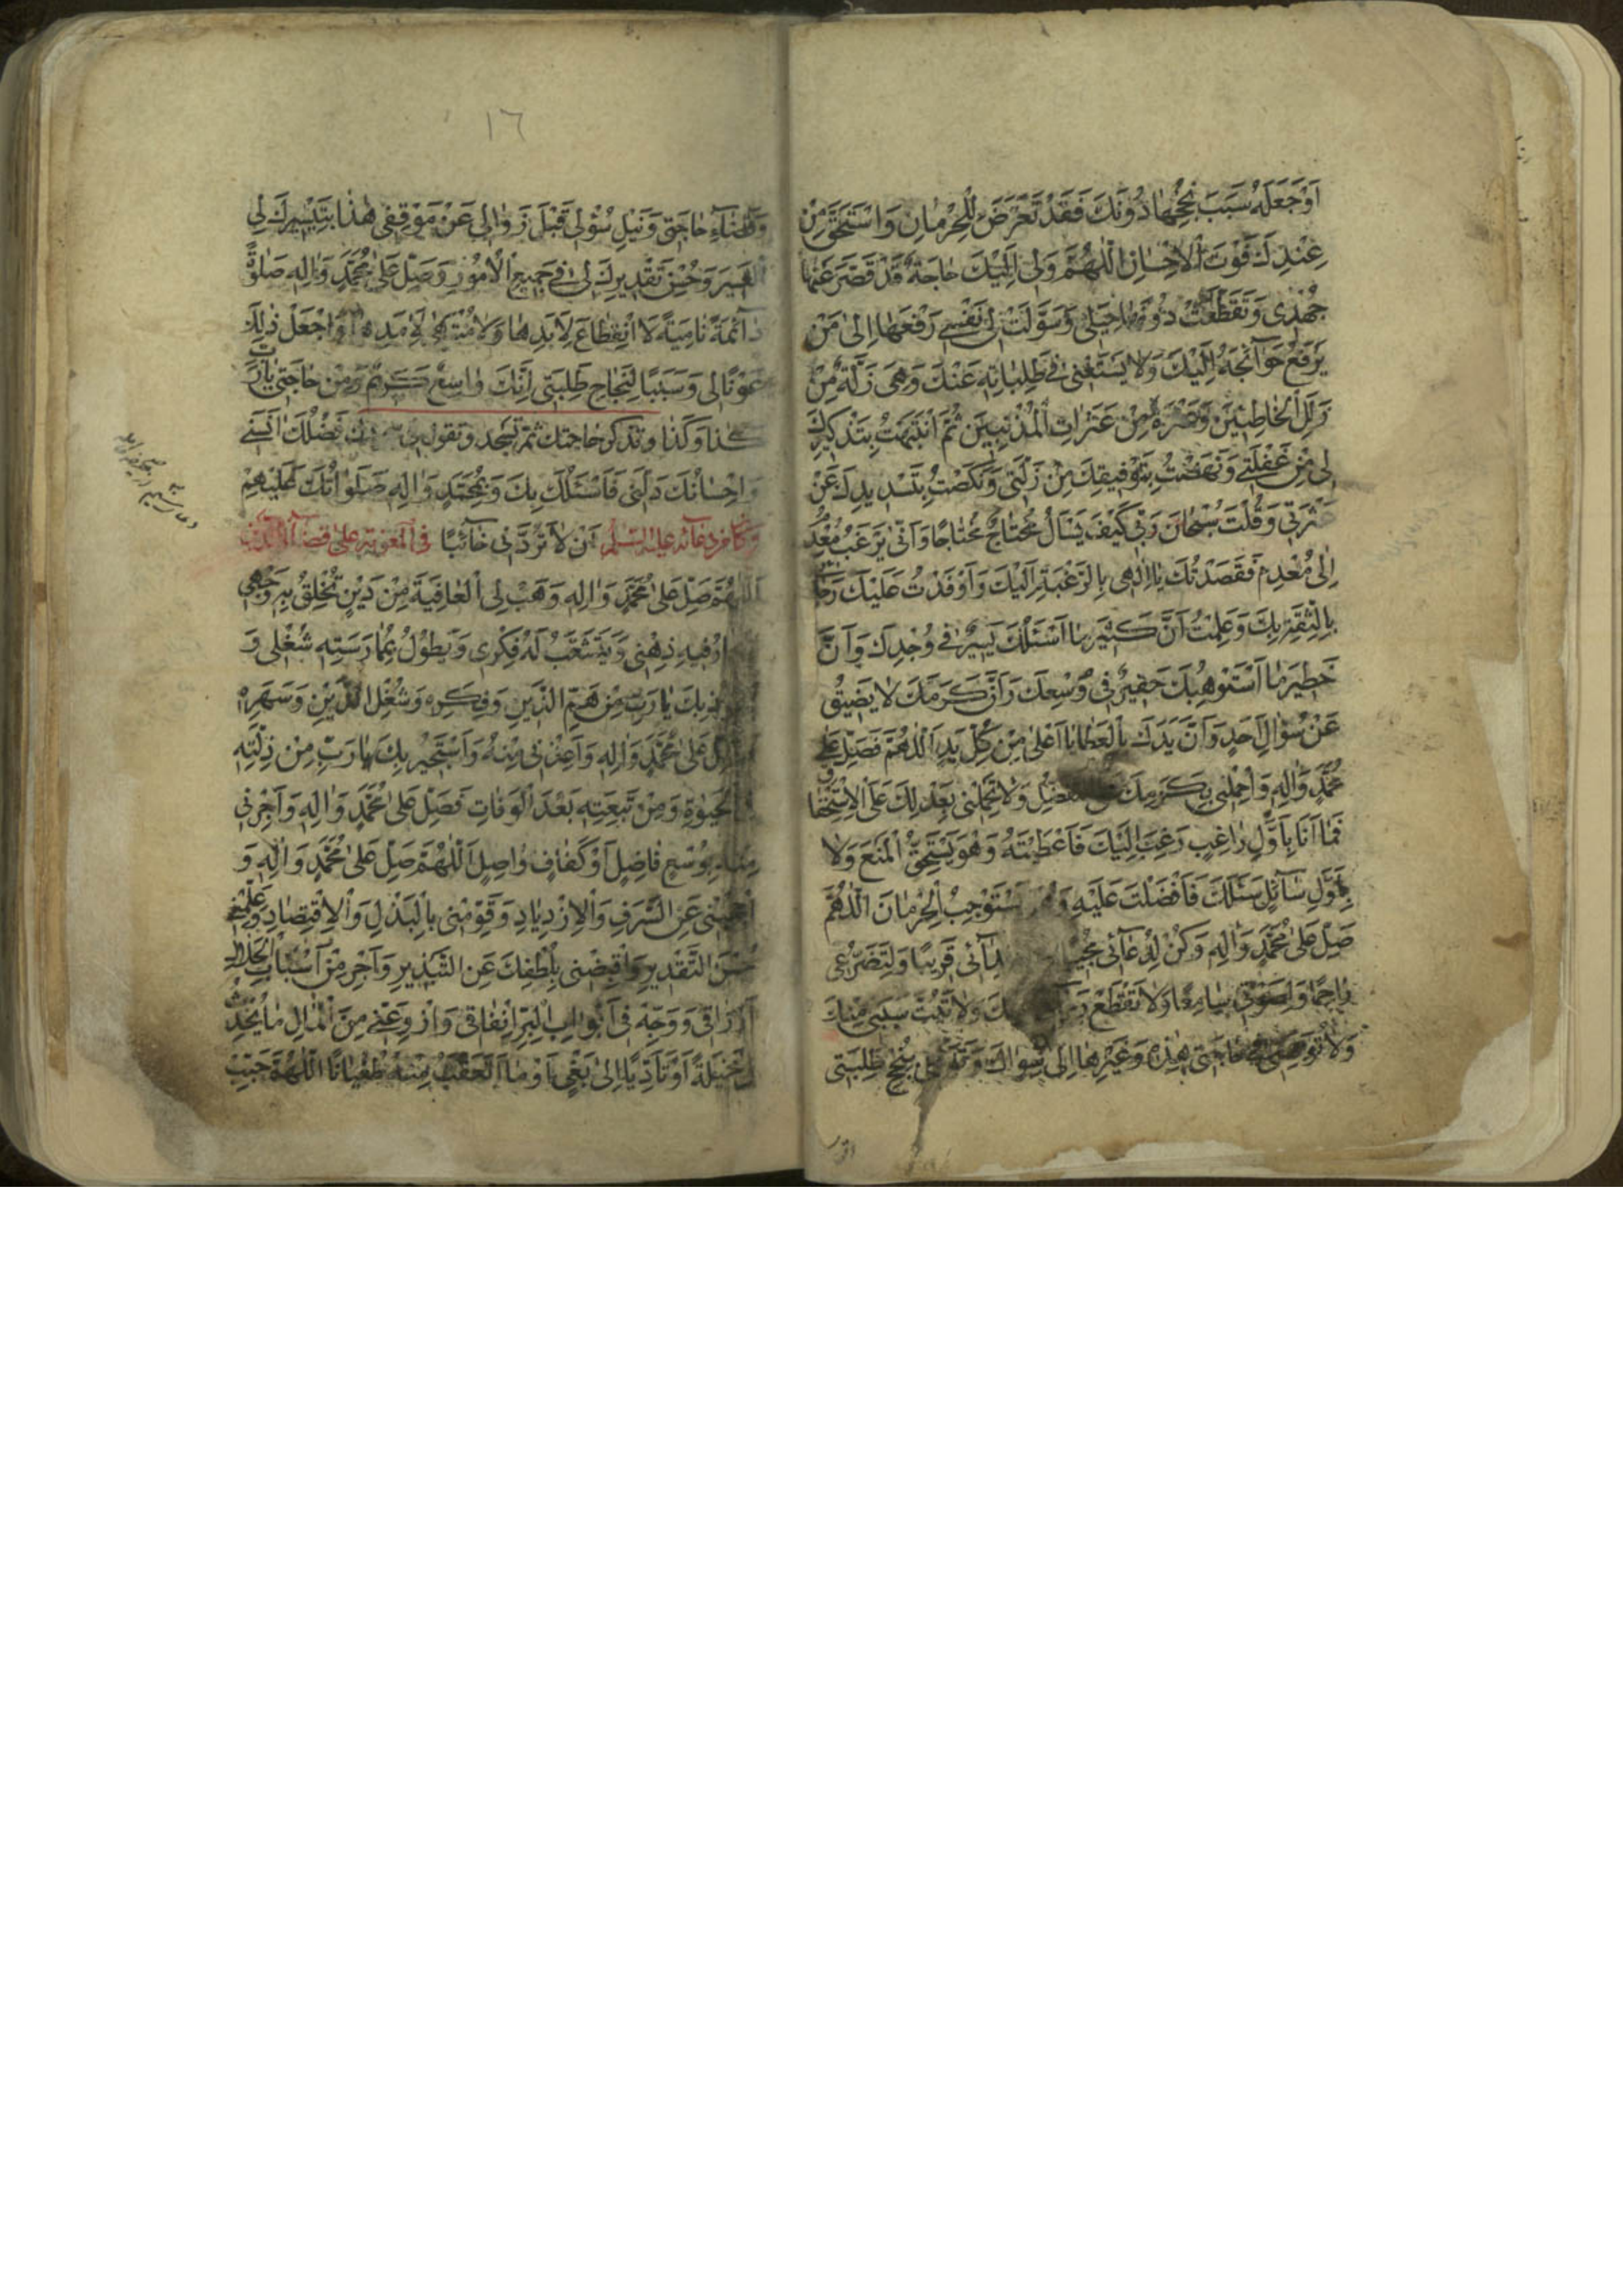 اَوْ جَعَلَهُ سَبَبَ نُجْحِهٰا دُونَكَ فَقَدْ تَعَرَّضَ لِلْحِرْمٰانِ وَاسْتَحَقَّ مِنْ
عِنْدِكَ فَوْتَ الْاِحْسٰانِ اَللّٰهُمَّ وَلٖى اِلَيْكَ حٰاجَةٌ قَدْ قَصَّرَ عَنْهٰا
جُهْدٖى وَتَقَطَّعَتْ دُونَهٰا حِيَلٖى وَسَوَّلَتْ لٖى نَفْسٖى رَفْعَهٰا اِلىٰ مَنْ
يَرْفَعُ حَوٰآئِجَهُ اِلَيْكَ وَلٰا يَسْتَغْنٖى فٖى طَلِبٰاتِهِ عَنْكَ وَهِىَ زَلَّةٌ مِنْ
زَلَلِ الْخٰاطِئٖينَ وَعَثْرَةٌ مِنْ عَثَرٰاتِ الْمُذْنِبٖينَ ثُمَّ انْتَبَهْتُ بِتَذْكٖيرِكَ
لٖى مِنْ غَفْلَتٖى وَنَهَضْتُ بِتَوْفٖيقِكَ مِنْ زَلَّتٖى وَنَكَصْتُ بِتَسْدٖيدِكَ عَنْ
عَثْرَتٖى وَقُلْتُ سُبْحٰانَ رَبّٖى كَيْفَ يَسْأَلُ مُحْتٰاجٌ مُحْتٰاجًا وَاَنّٰى يَرْغَبُ مُعْدِمٌ
اِلىٰ مُعْدِمٍ فَقَصَدْتُكَ يٰا اِلٰهٖى بِالرَّغْبَةِ اِلَيْكَ وَاَوْفَدْتُ عَلَيْكَ رَجٰآئٖى
بِالثِّقَةِ بِكَ وَعَلِمْتُ اَنَّ كَثٖيرَ مٰا اَسْئَلُكَ يَسٖيرٌ فٖى وُجْدِكَ وَاَنَّ
خَطٖيرَ مٰا اَسْتَوْهِبُكَ حَقٖيرٌ فٖى وُسْعِكَ وَاَنَّ كَرَمَكَ لٰا يَضٖيقُ
عَنْ سُؤٰالِ اَحَدٍ وَاَنَّ يَدَكَ بِالْعَطٰايٰا اَعْلىٰ مِنْ كُلِّ يَدٍ اَللّٰهُمَّ فَصَلِّ عَلىٰ
مُحَمَّدٍ وَاٰلِهِ وَاحْمِلْنٖى بِكَرَمِكَ التَّفَضُّلِ وَلٰا تَحْمِلْنٖى بِعَدْلِكَ عَلَى الْاِسْتِحْقٰاقِ
فَمٰا اَنَا بِاَوَّلِ رٰاغِبٍ رَغِبَ اِلَيْكَ فَاَعْطَيْتَهُ وَهُوَ يَسْتَحِقُّ الْمَنْعَ وَلٰا
بِاَوَّلِ سٰآئِلٍ سَئَلَكَ فَاَفْضَلْتَ عَلَيْهِ وَهُوَ يَسْتَوْجِبُ الْحِرْمٰانَ اَللّٰهُمَّ
صَلِّ عَلىٰ مُحَمَّدٍ وَاٰلِهِ وَكُنْ لِدُعٰآئٖى مُجٖيبًا نِدٰآئٖى قَرٖيبًا وَلِتَضَرُّعٖى
رٰاحِمًا وَلِصَوْتٖى سٰامِعًا وَلٰا تَقْطَعْ عَنْكَ وَلٰا تَبُتَّ سَبَبٖى مِنْكَ
وَلٰا تُوَجِّهْنٖى فٖى حٰاجَتٖى هٰذِهِ وَغَيْرِهٰا اِلىٰ سِوٰاكَ وَتَوَلَّنٖى بِنُجْحِ طَلِبَتٖى
١٦
وَقَضٰآءِ حٰاجَتٖى وَنَيْلِ سُؤْلٖى قَبْلَ زَوٰالٖى عَنْ مَوْقِفٖى هٰذٰا بِتَيْسٖيرِكَ لِىَ
الْعَسٖيرَ وَحُسْنِ تَقْدٖيرِكَ لٖى فٖى جَمٖيعِ الْاُمُورِ وَصَلِّ عَلىٰ مُحَمَّدٍ وَاٰلِهِ صَلٰوةً
دٰآئِمَةً نٰامِيَةً لَا انْقِطٰاعَ لِاَبَدِهٰا وَلٰا مُنْتَهىٰ لِاَمَدِهٰا وَاجْعَلْ ذٰلِكَ
عَوْنًا لٖى وَسَبَبًا لِنَجٰاحِ طَلِبَتٖى اِنَّكَ وٰاسِعٌ كَرٖيمٌ وَمِنْ حٰاجَتٖى يٰا رَبِّ
كَذٰا وَكَذٰا وتذكر حاجتك ثم تسجد وتقول فَضْلُكَ اٰنَسَنٖى
وَاِحْسٰانُكَ دَلَّنٖى فَاَسْئَلُكَ بِكَ وَبِمُحَمَّدٍ وَاٰلِهِ صَلَوٰاتُكَ عَلَيْهِمْ
اَنْ لٰا تَرُدَّنٖى خٰآئِبًا وكان من دعآئه عليه السلم فى المعونة على قضآء الدين
اَللّٰهُمَّ صَلِّ عَلىٰ مُحَمَّدٍ وَاٰلِهِ وَهَبْ لِىَ الْعٰافِيَةَ مِنْ دَيْنٍ تُخْلِقُ بِهِ وَجْهٖى
وَيَحٰارُ فٖيهِ ذِهْنٖى وَيَتَشَعَّبُ لَهُ فِكْرٖى وَيَطُولُ بِمُمٰارَسَتِهِ شُغْلٖى وَ
اَعُوذُ بِكَ يٰا رَبِّ مِنْ هَمِّ الدَّيْنِ وَفِكْرِهِ وَشُغْلِ الدَّيْنِ وَسَهَرِهِ
فَصَلِّ عَلىٰ مُحَمَّدٍ وَاٰلِهِ وَاَعِذْنٖى مِنْهُ وَاَسْتَجٖيرُ بِكَ يٰا رَبِّ مِنْ ذِلَّتِهِ
الْحَيٰوةِ وَمِنْ تَبِعَتِهِ بَعْدَ الْوَفٰاتِ فَصَلِّ عَلىٰ مُحَمَّدٍ وَاٰلِهِ وَاَجِرْنٖى
مِنْهُ بِوُسْعٍ فٰاضِلٍ اَوْ كَفٰافٍ وٰاصِلٍ اَللّٰهُمَّ صَلِّ عَلىٰ مُحَمَّدٍ وَاٰلِهِ وَ
احْجُبْنٖى عَنِ السَّرَفِ وَالْاِزْدِيٰادِ وَقَوِّمْنٖى بِالْبَذْلِ وَالْاِقْتِصٰادِ وَعَلِّمْنٖى
حُسْنَ التَّقْدٖيرِ وَاقْبِضْنٖى بِلُطْفِكَ عَنِ التَّبْذٖيرِ وَاَجْرِ مِنْ اَسْبٰابِ الْحَلٰالِ
اَرْزٰاقٖى وَوَجِّهْ فٖى اَبْوٰابِ الْبِرِّ اِنْفٰاقٖى وَازْوِ عَنّٖى مِنَ الْمٰالِ مٰا يُحْدِثُ
لٖى مَخٖيلَةً اَوْ تَاَدِّيًا اِلىٰ بَغْىٍ اَوْ مٰا اَتَعَقَّبُ مِنْهُ طُغْيٰانًا اَللّٰهُمَّ حَبِّبْ